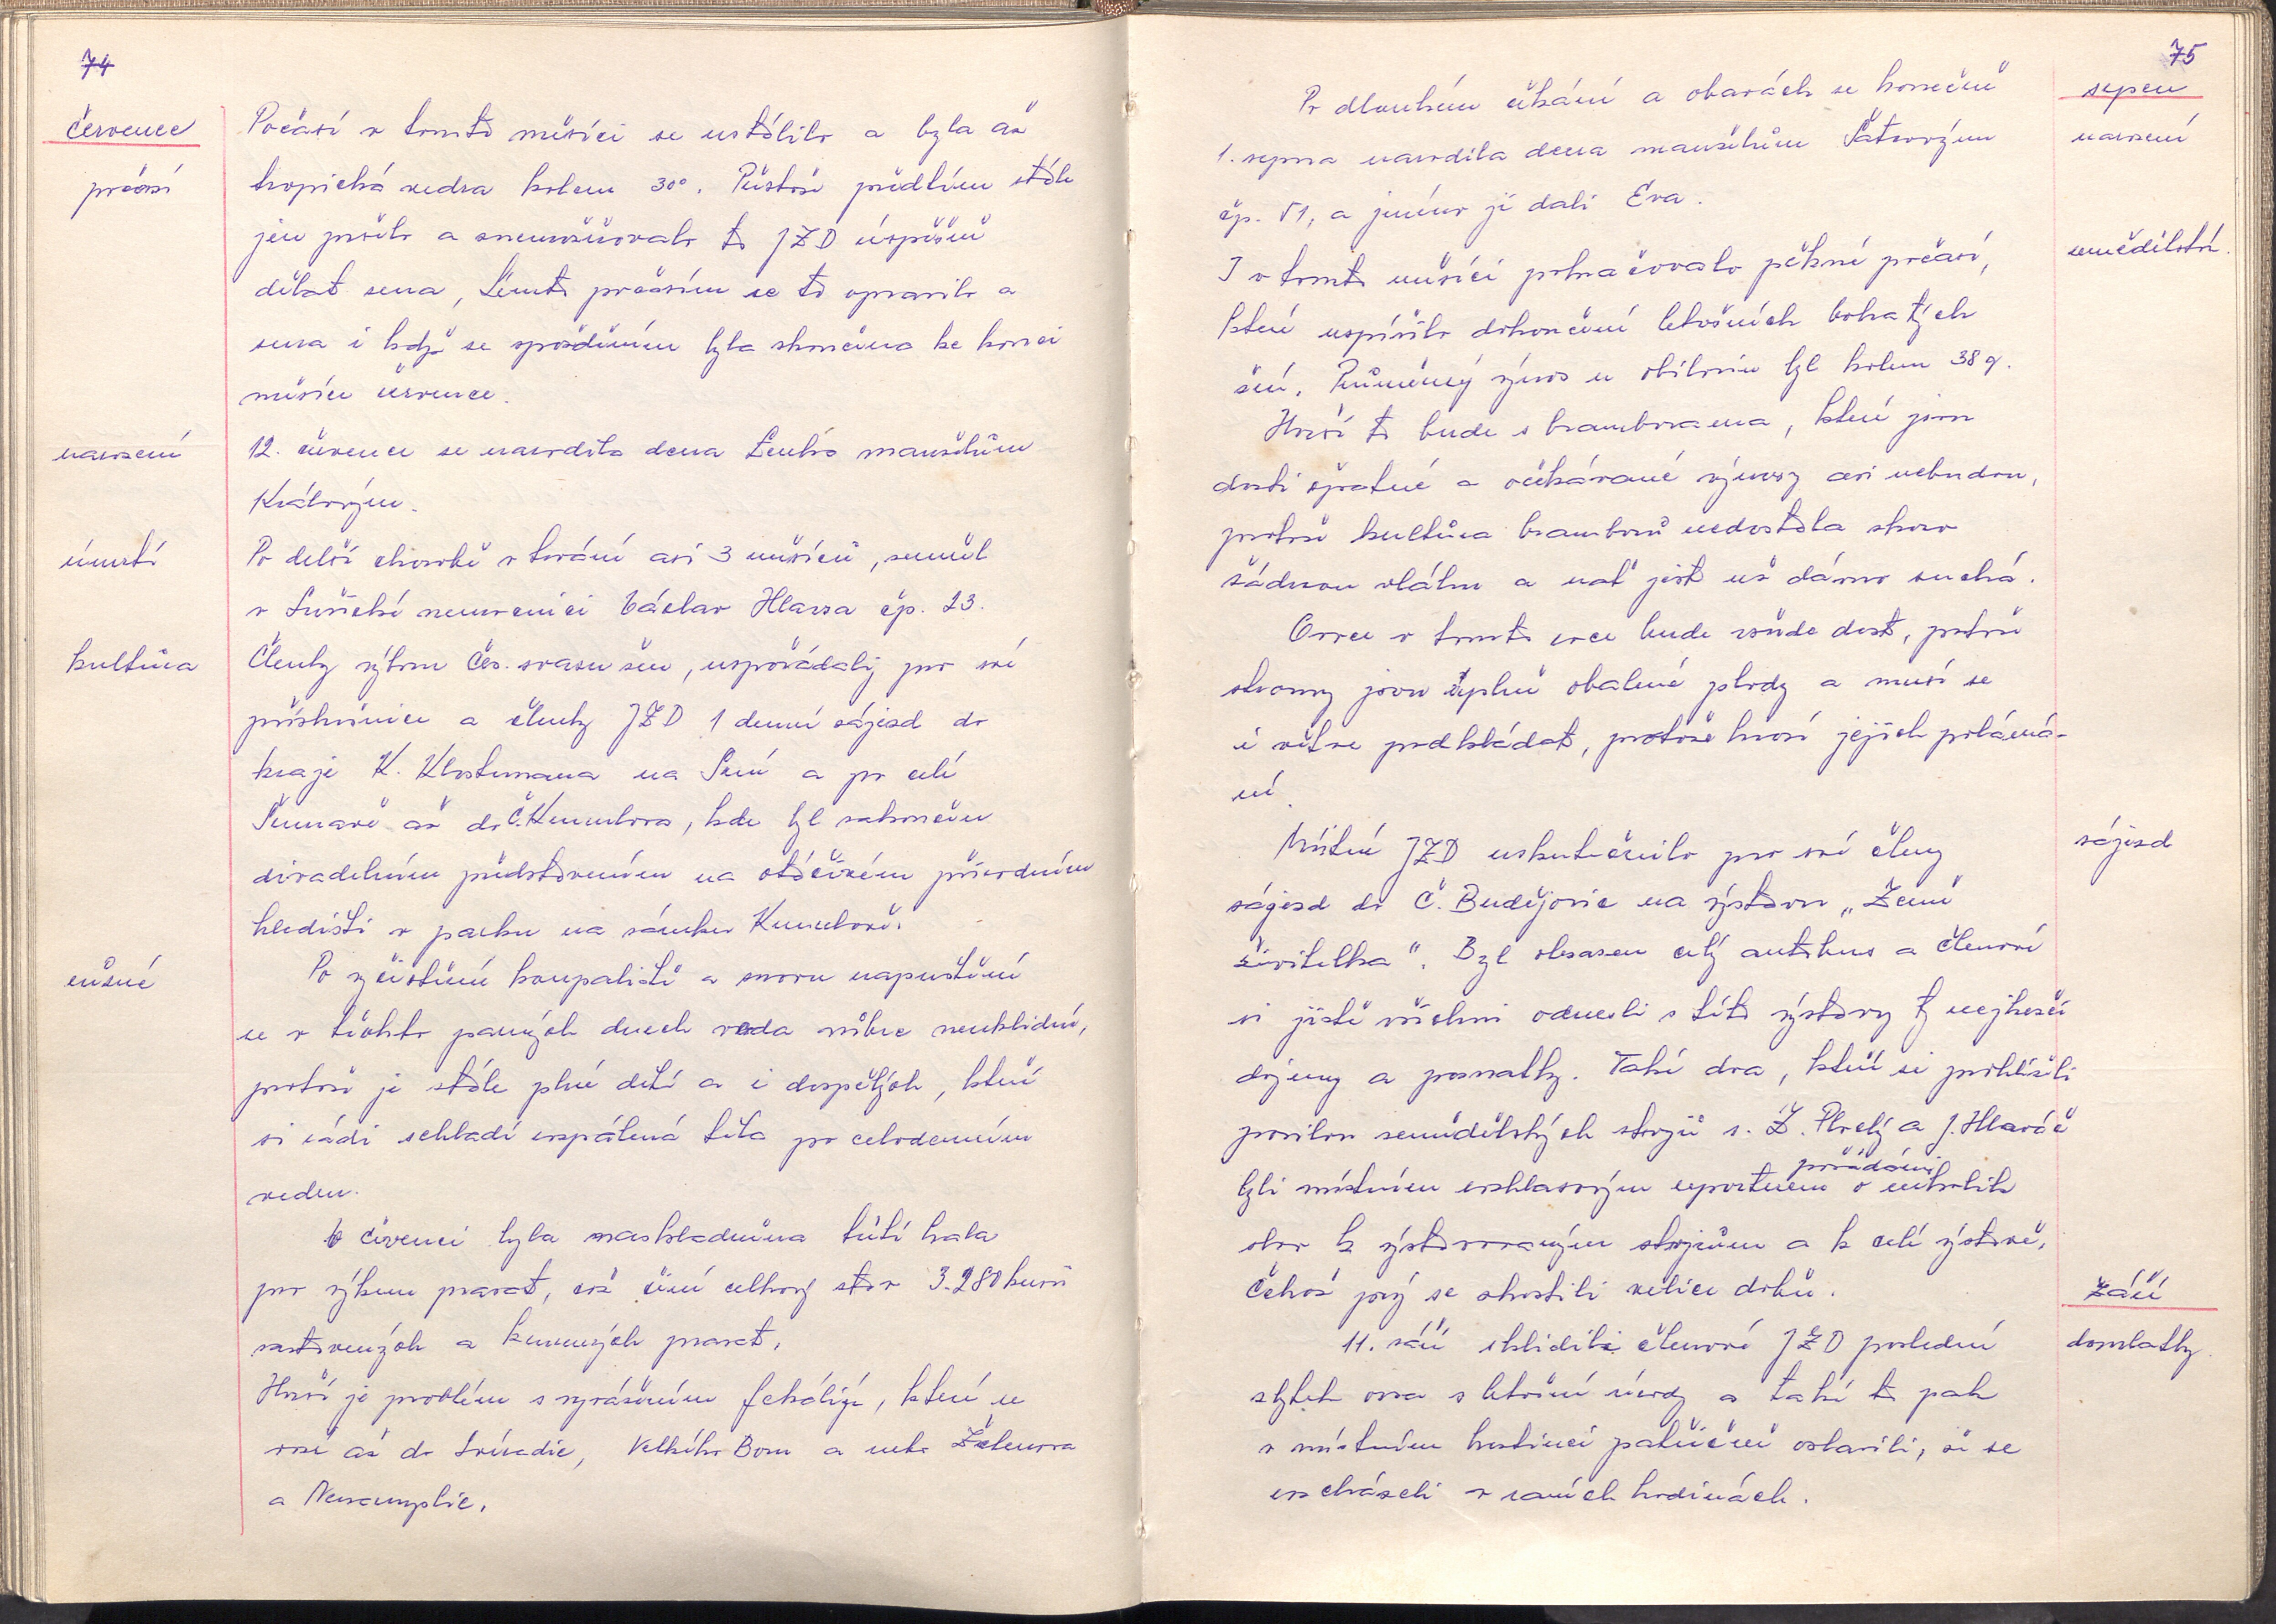 74
červenec
počasí
Počasí v tomto měsíci se ustálilo a byla až
tropická vedra kolem 30°. Přestože předtím stále
jen pršelo a znemožňovalo to JZD úspěšně
dělat sena, tímto počasím se to opravilo a
sena i když se zpožděním byla skončena ke konci
měsíce července.
narození
12. července se narodila dcera Lenka manželům
Královým.
úmrtí
Po delší chorobě v trvání asi 3 měsíců, zemřel
v Sušické nemocnici Václav Hlavsa čp. 23.
kultůra
Členky výboru Čes. svazu žen, uspořádaly pro své
příslušnice a členky JZD 1 denní zájezd do
kraje K. Klostermana na Srní a po celé
Šumavě až do Č. Krumlova, kde byl zakončen
divadelním představením na otáčivém přírodním
hledišti v parku na zámku Krumlově.
různé
Po vyčistění koupaliště a znovu napuštění
se v těchto parných dnech voda vůbec neuklidní,
protože je stále plné dětí a i dospělých, kteří
si rádi schladí rozpálená těla po celodenním
vedru.
V červenci byla naskladněna třetí hala
pro výkrm prasat, což činí celkový stav 3.280 kusů
zastavených a krmených prasat.
Horší je problém s vyvážením fekálijí, které se
vozí až do Svinadic, Velkého Boru a nebo Žďekova
a Nezamyslic.
75
srpen
narození
Po dlouhém čekání a obavách se konečně
1. srpna narodila dcera manželům Šatrovým
čp. 51, a jméno jí dali Eva.
zemědělství.
I v tomto měsíci pokračovalo pěkné počasí,
které uspíšilo dokončení letošních bohatých
žní. Průměrný výnos u obilovin byl kolem 38 q.
Horší to bude s bramborama, které jsou
dosti špatné a očekávané výnosy asi nebudou,
protože kultůra brambor nedostala skoro
žádnou vláhu a nať jest už dávno suchá.
Ovoce v tomto roce bude všude dost, protože
stromy jsou úplně obalené plody a musí se
i větve podkládat, protože hrozí jejich poláma-
ní.
zájezd
Místní JZD uskutečnilo pro své členy
zájezd do Č. Budějovic na výstavu „Země
živitelka". Byl obsazen celý autobus a členové
si jistě všichni odnesli s této výstavy ty nejhezčí
dojmy a poznatky. Také dva, kteří si prohlíželi
pavilon zemědělských strojů s. Z. Plocký a J. Hlaváč
požádáni
byli místním rozhlasovým reportérem o několik
slov k vystavovaným strojům a k celé výstavě,
čehož prý se zhostili velice dobře.
Září
domlatky.
11. září sklidili členové JZD poslední
zbytek ovsa s letošní úrody a také to pak
v místním hostinci patřičně oslavili, že se
rozcházeli v raních hodinách.